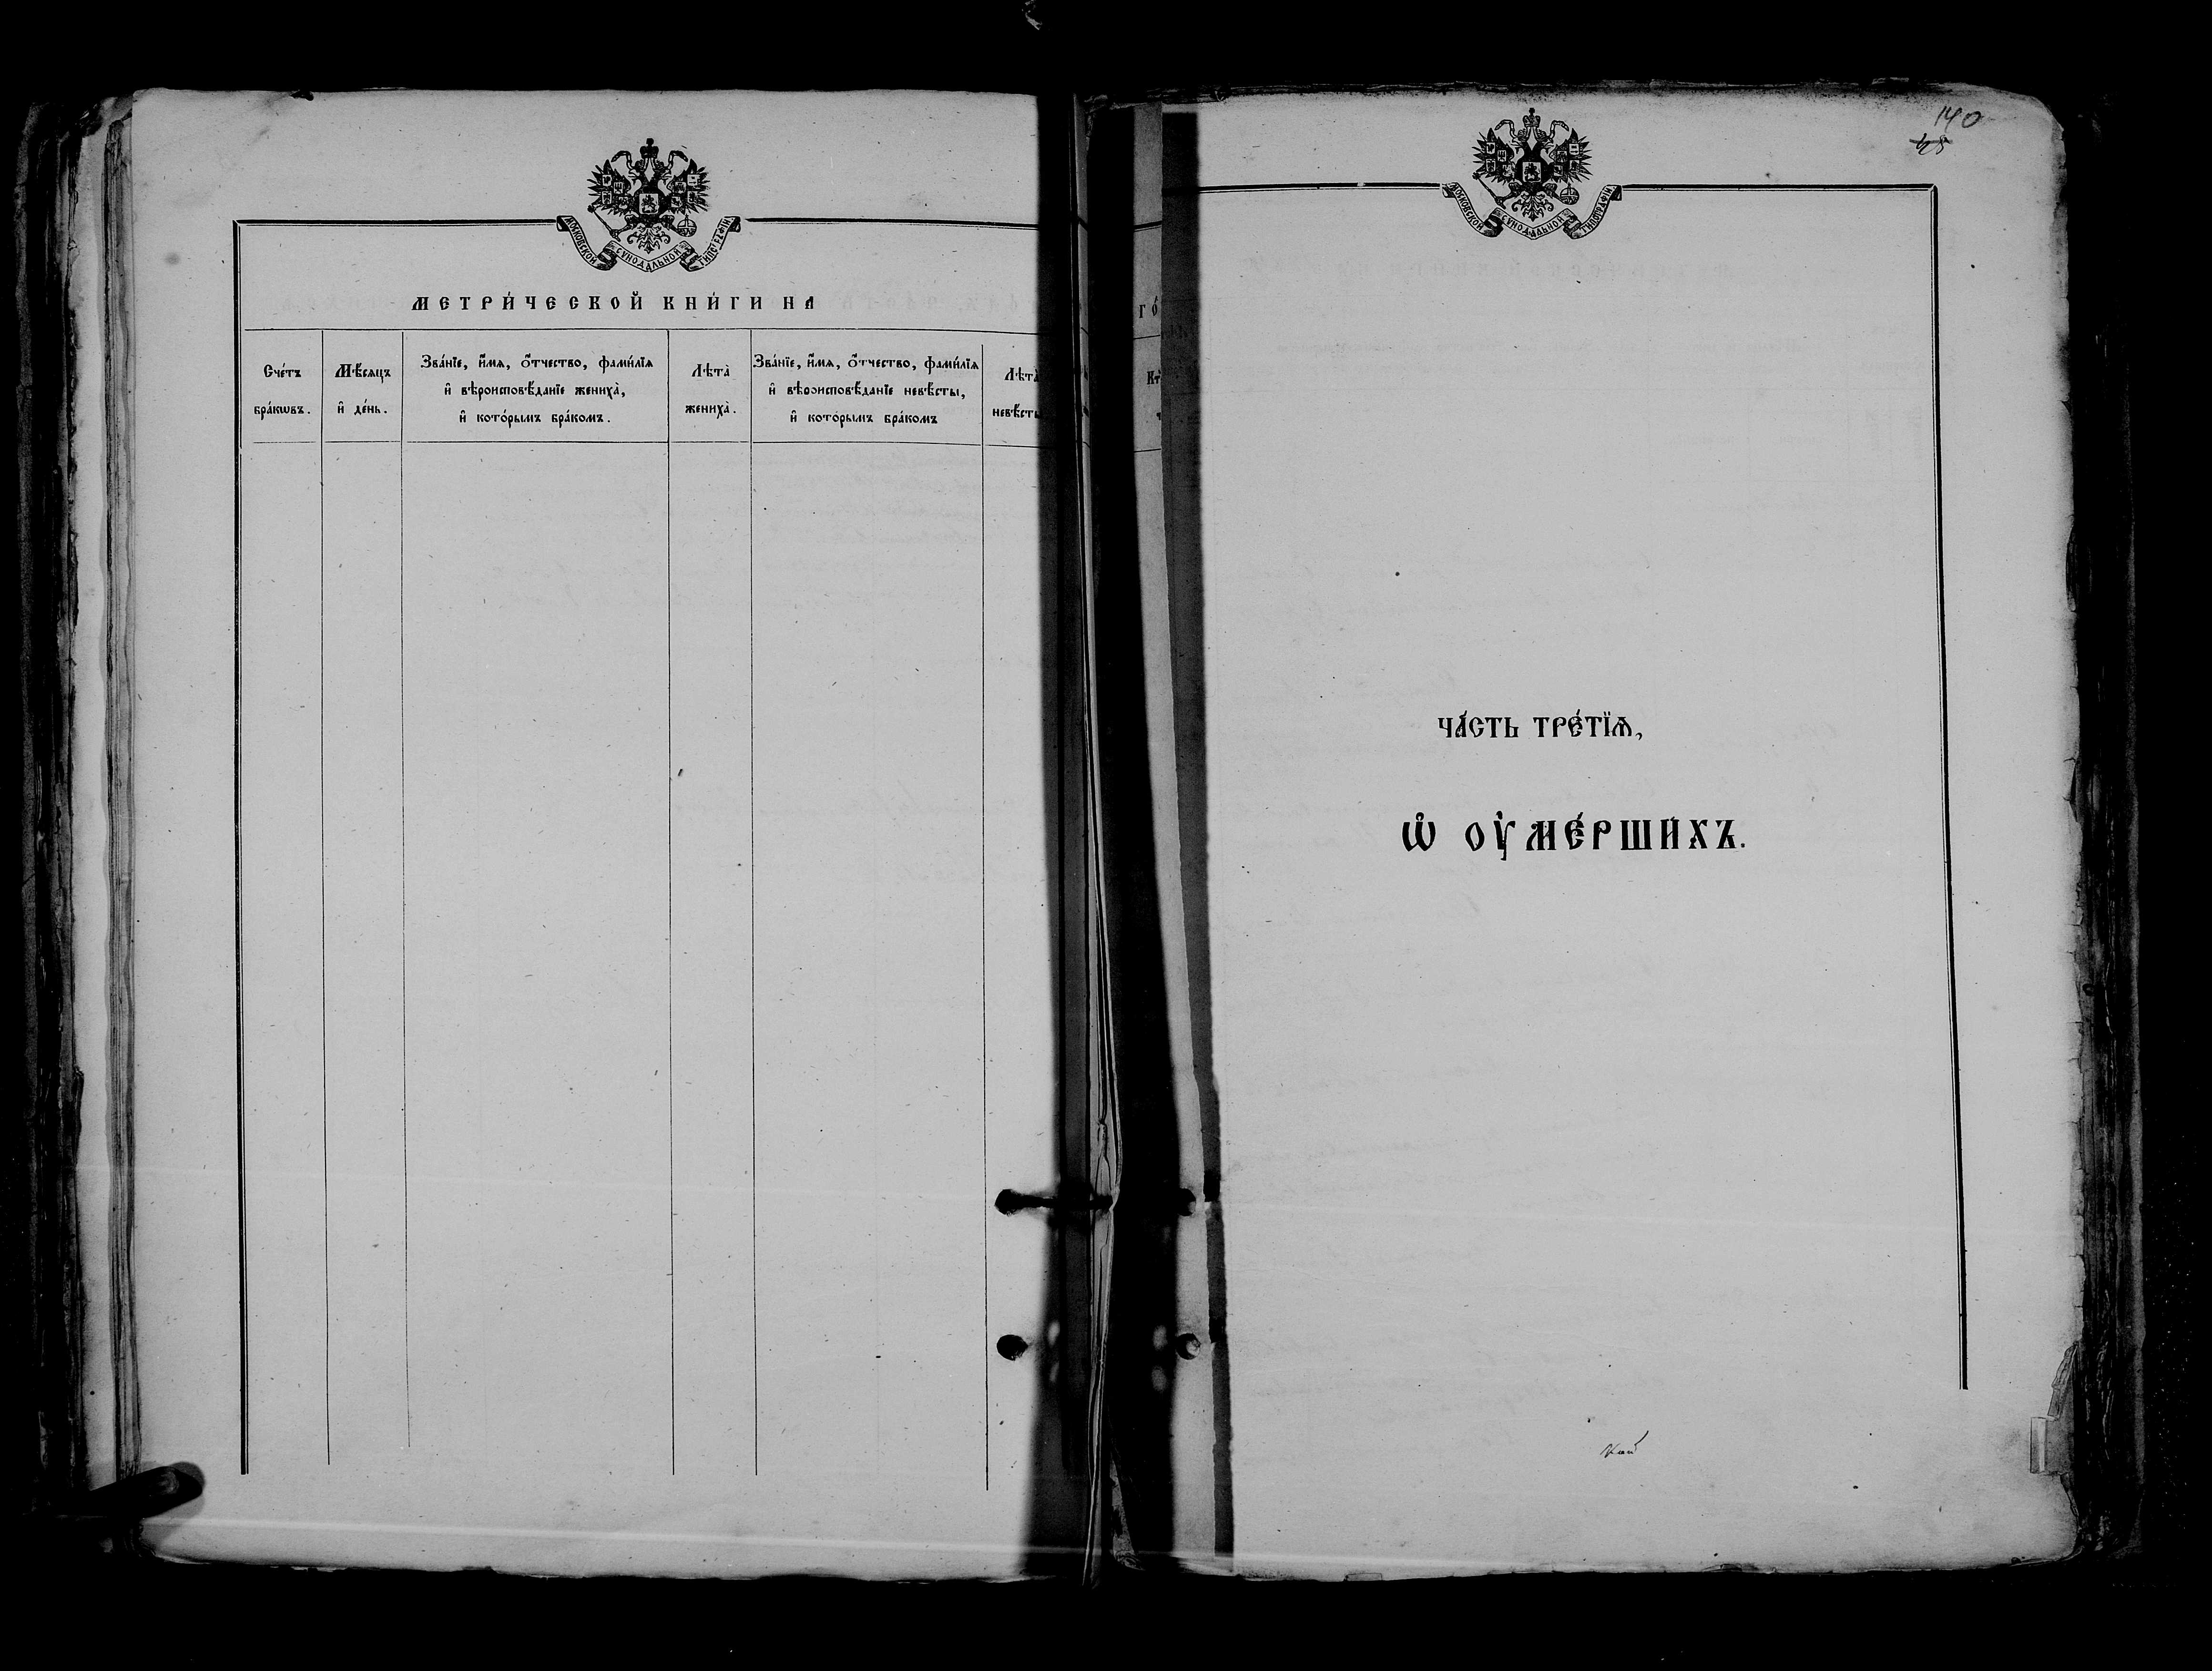 МОСКОВСКОЙ СѴНОДАЛЬНОЙ ТИПОГРАФІИ
МЕТРИ́ЧЕСКОЙ КНИ́ГИ НА
Сче́тъ бра́кωвъ.
Мѣ́сяцъ и҆ де́нь.
Зва́нїе, и҆́мѧ, о҆́тчество, фами́лїѧ
и҆ вѣроисповѣ́данїе жениха̀,
и҆ кото́рымъ бра́комъ.
Лѣта̀
жениха̀.
Зва́нїе, и҆́мѧ, о҆́тчество, фами́лїѧ
и҆ вѣроисповѣ́данїе невѣ́сты,
и҆ кото́рымъ бра́комъ
Лѣта̀
невѣ́сты
ГО́
Кт
140
МОСКОВСКОЙ СѴНОДАЛЬНОЙ ТИПОГРАФІИ
ЧА́СТЬ ТРЕ́ТЇѦ,
Ѡ҆ ОУ҆МЕ́РШИХЪ.